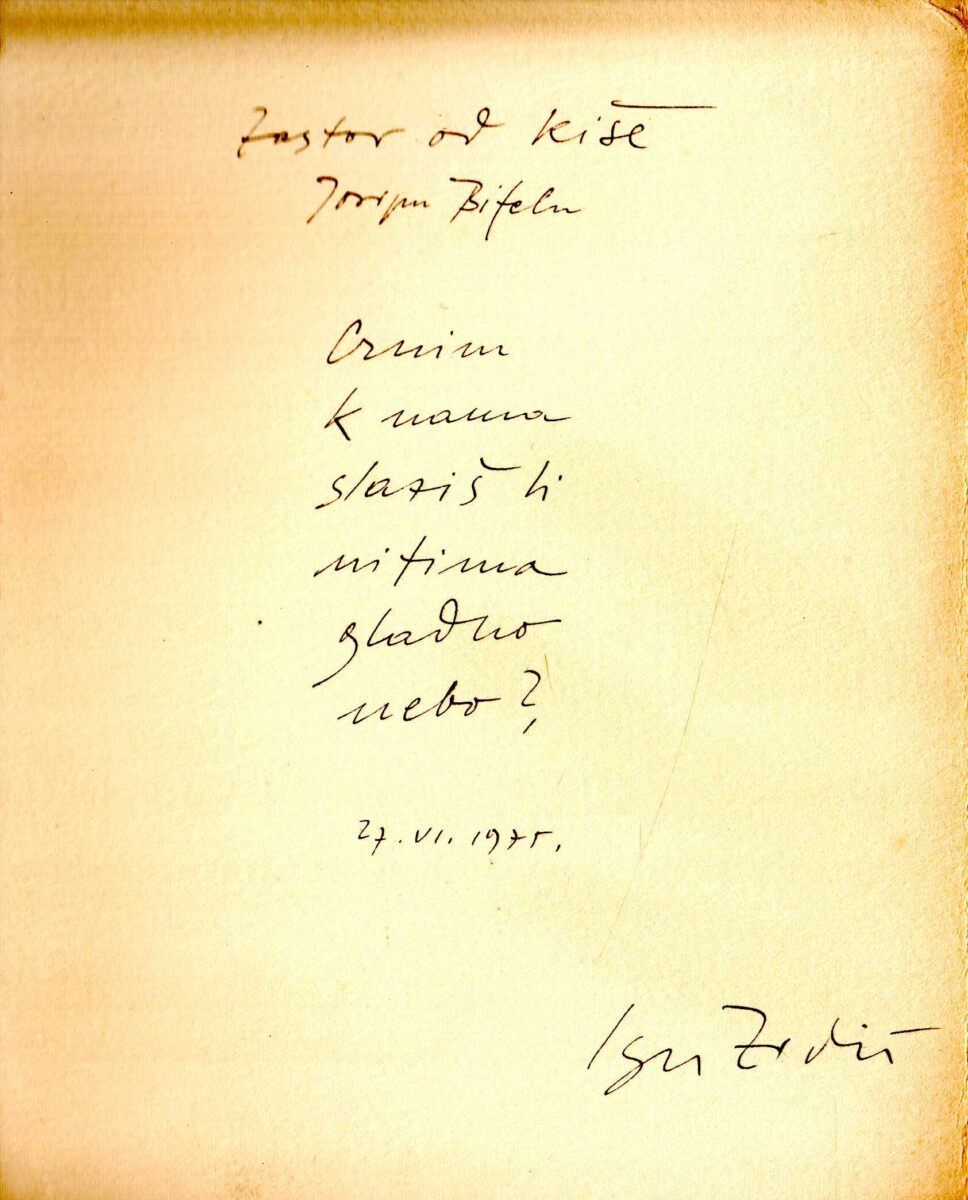 Zastor od kiše
Josipu Bifelu
Crnim
k nama
slaziš li
nitima
gladno
nebo?
27. VI. 1975.
Igor Zidić